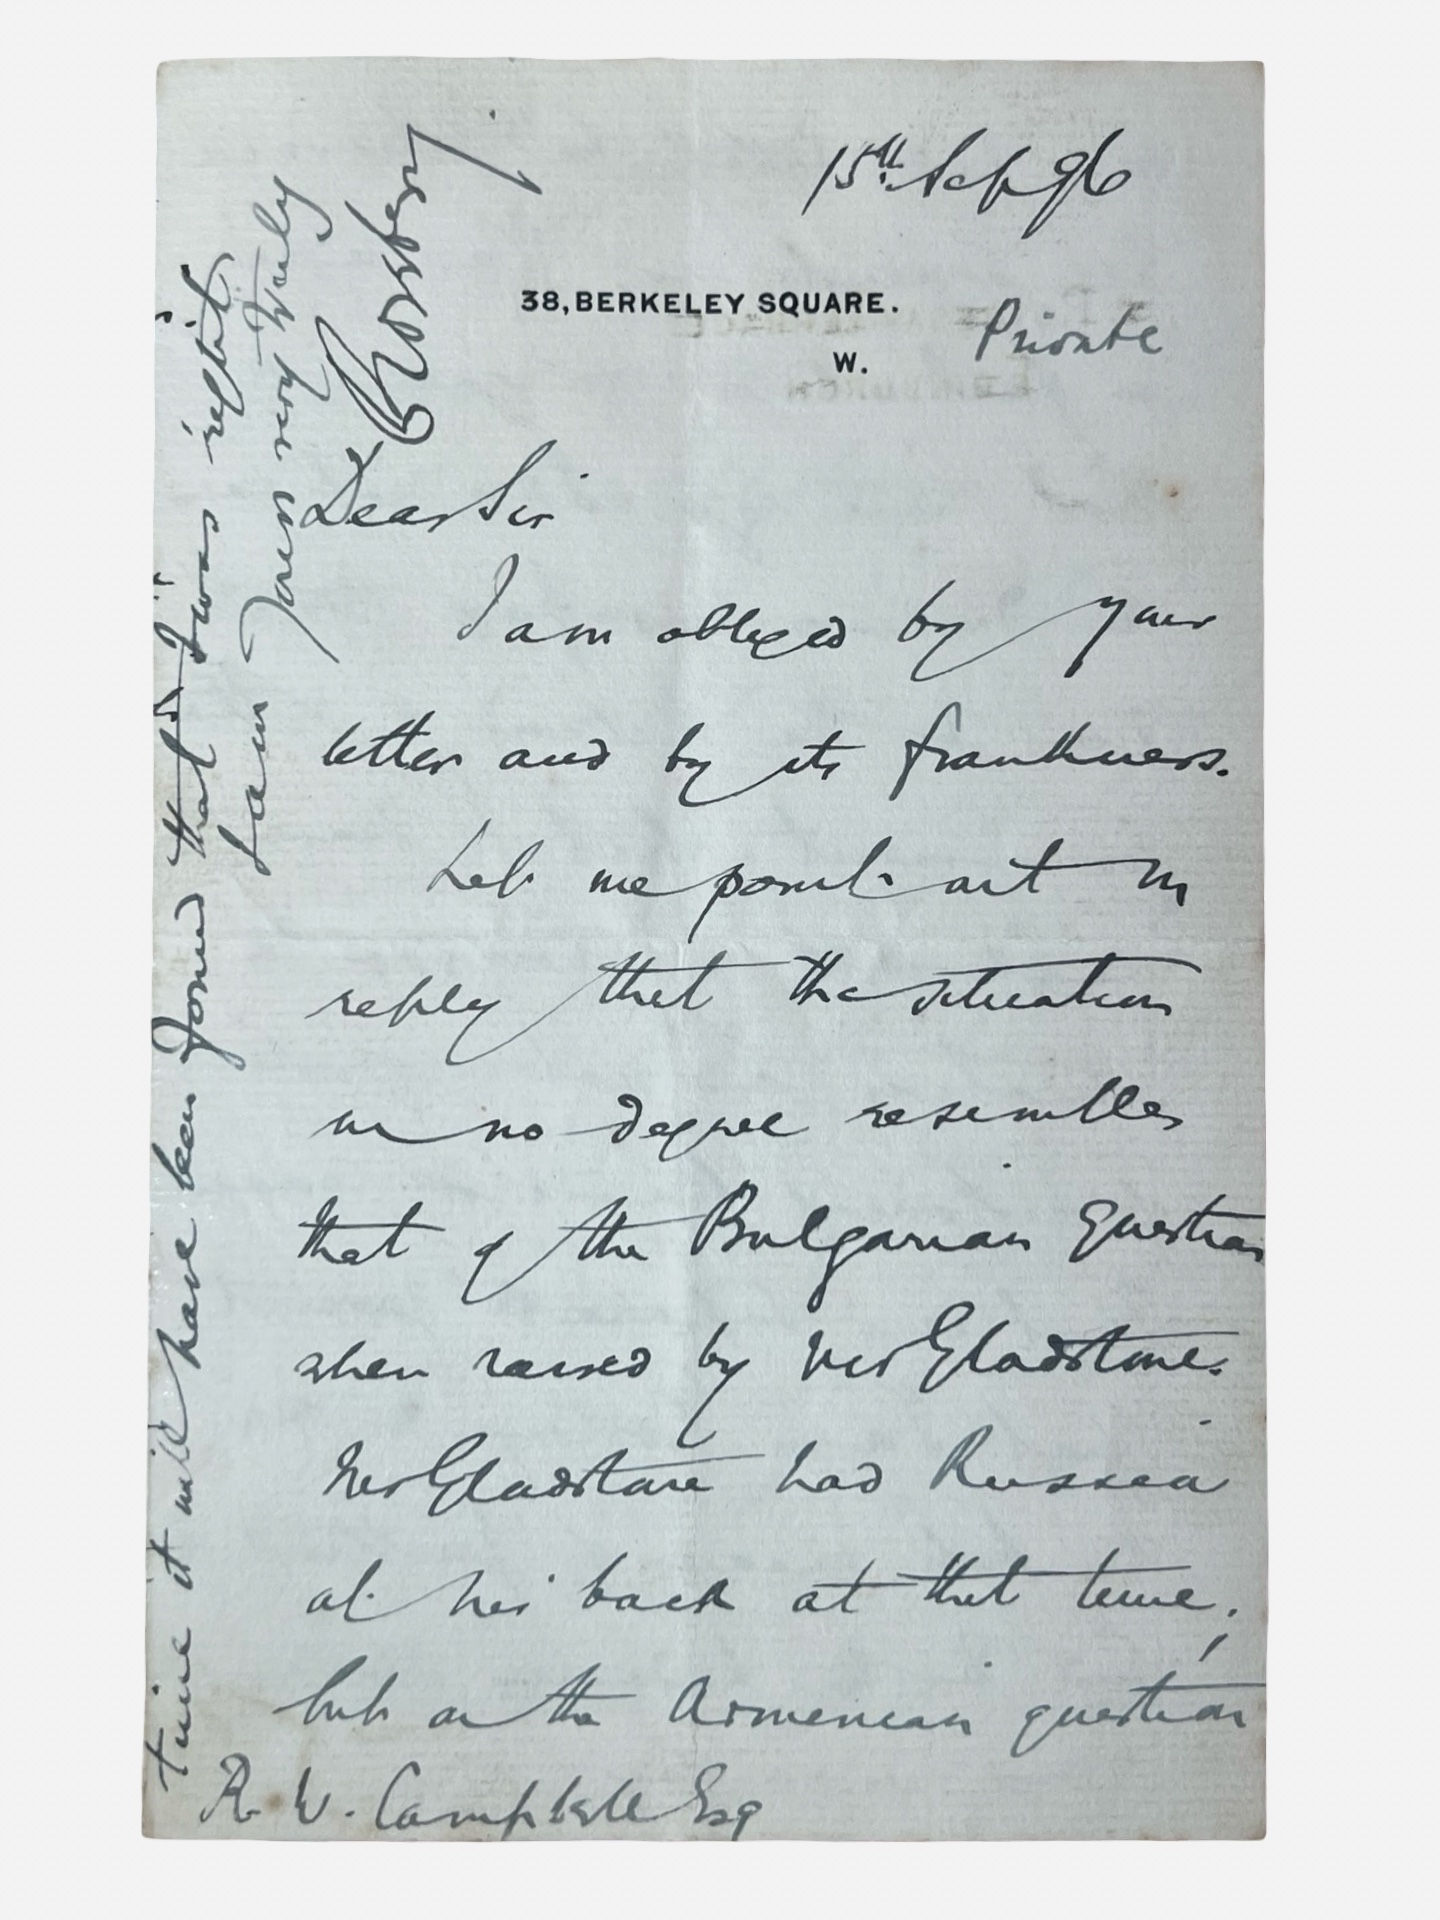 15th. Sep 96
38, BERKELEY SQUARE.
W.
Private
Dear Sir
I am obliged by your
letter and by its frankness.
Let me point out in
reply that the situation
in no degree resembles
that of the Bulgarian Question
when raised by Mr Gladstone.
Mr Gladstone had Russia
at his back at that time,
but on the Armenian question
R. W. Campbell Esq
time it will have been found that I was right
I am
Yours very truly
Rosebery.